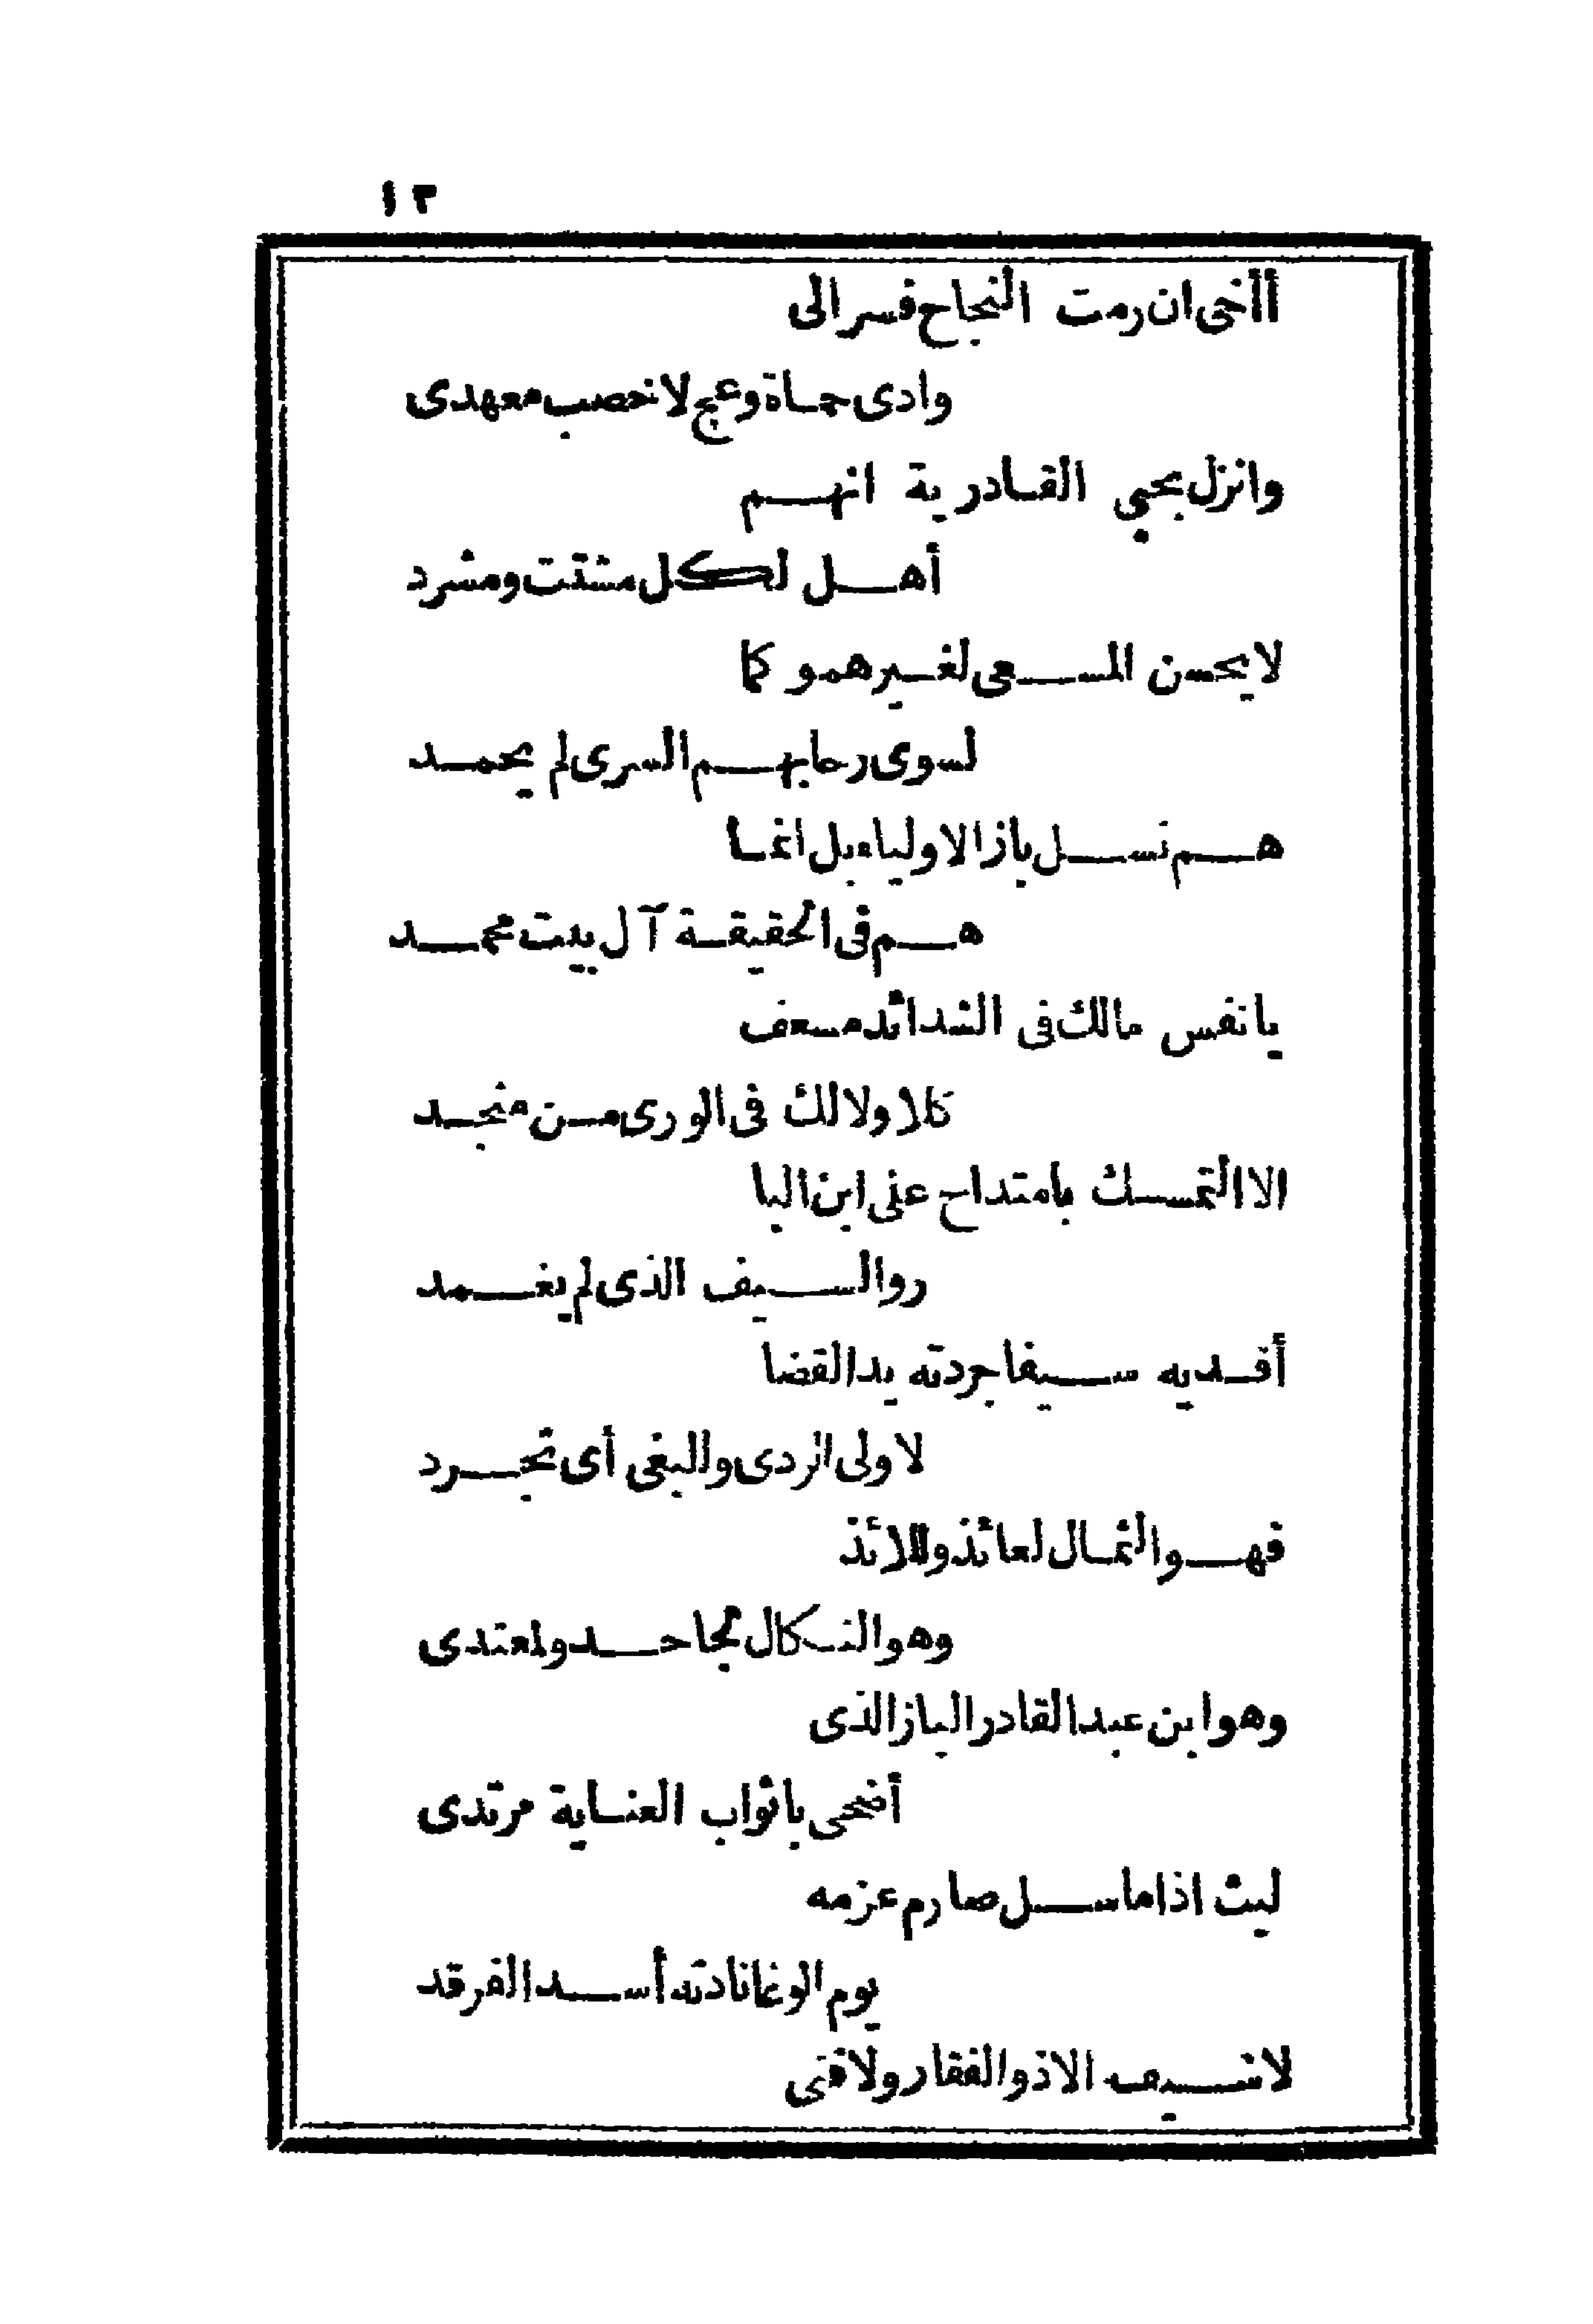 ١٣
أأخى ان رمت النجاح فسر الى
وادى حماة وعج لاخصب معهدى
وانزل بحيى القادرية انهم
أهل لكل مشتت ومشرد
لا يحسن المسعى لغيرهمو كما
لسوى رحابهم السرى لم يحمد
هم نسل باز الاولياء بل انما
هم فى الحقيقة آل بيت محمد
يا نفس مالك فى الشدائد مسعف
كلا ولا لك فى الورى من منجد
الا التمسك بامتداح على ابن البا
ز والسيف الذى لم يغمد
أفديه سيفا جردته يد القضا
لاولى الردى والبغى أى تجرد
فهو الثمال لعائذ وللائذ
وهو النكال لجاحد ولمعتدى
وهو ابن عبد القادر الباز الذى
أضحى باثواب العناية مرتدى
ليث اذا ما سل صارم عزمه
يوم الوغا نادته أسد الفرقد
لا سيف الا ذو الفقار ولا فتى